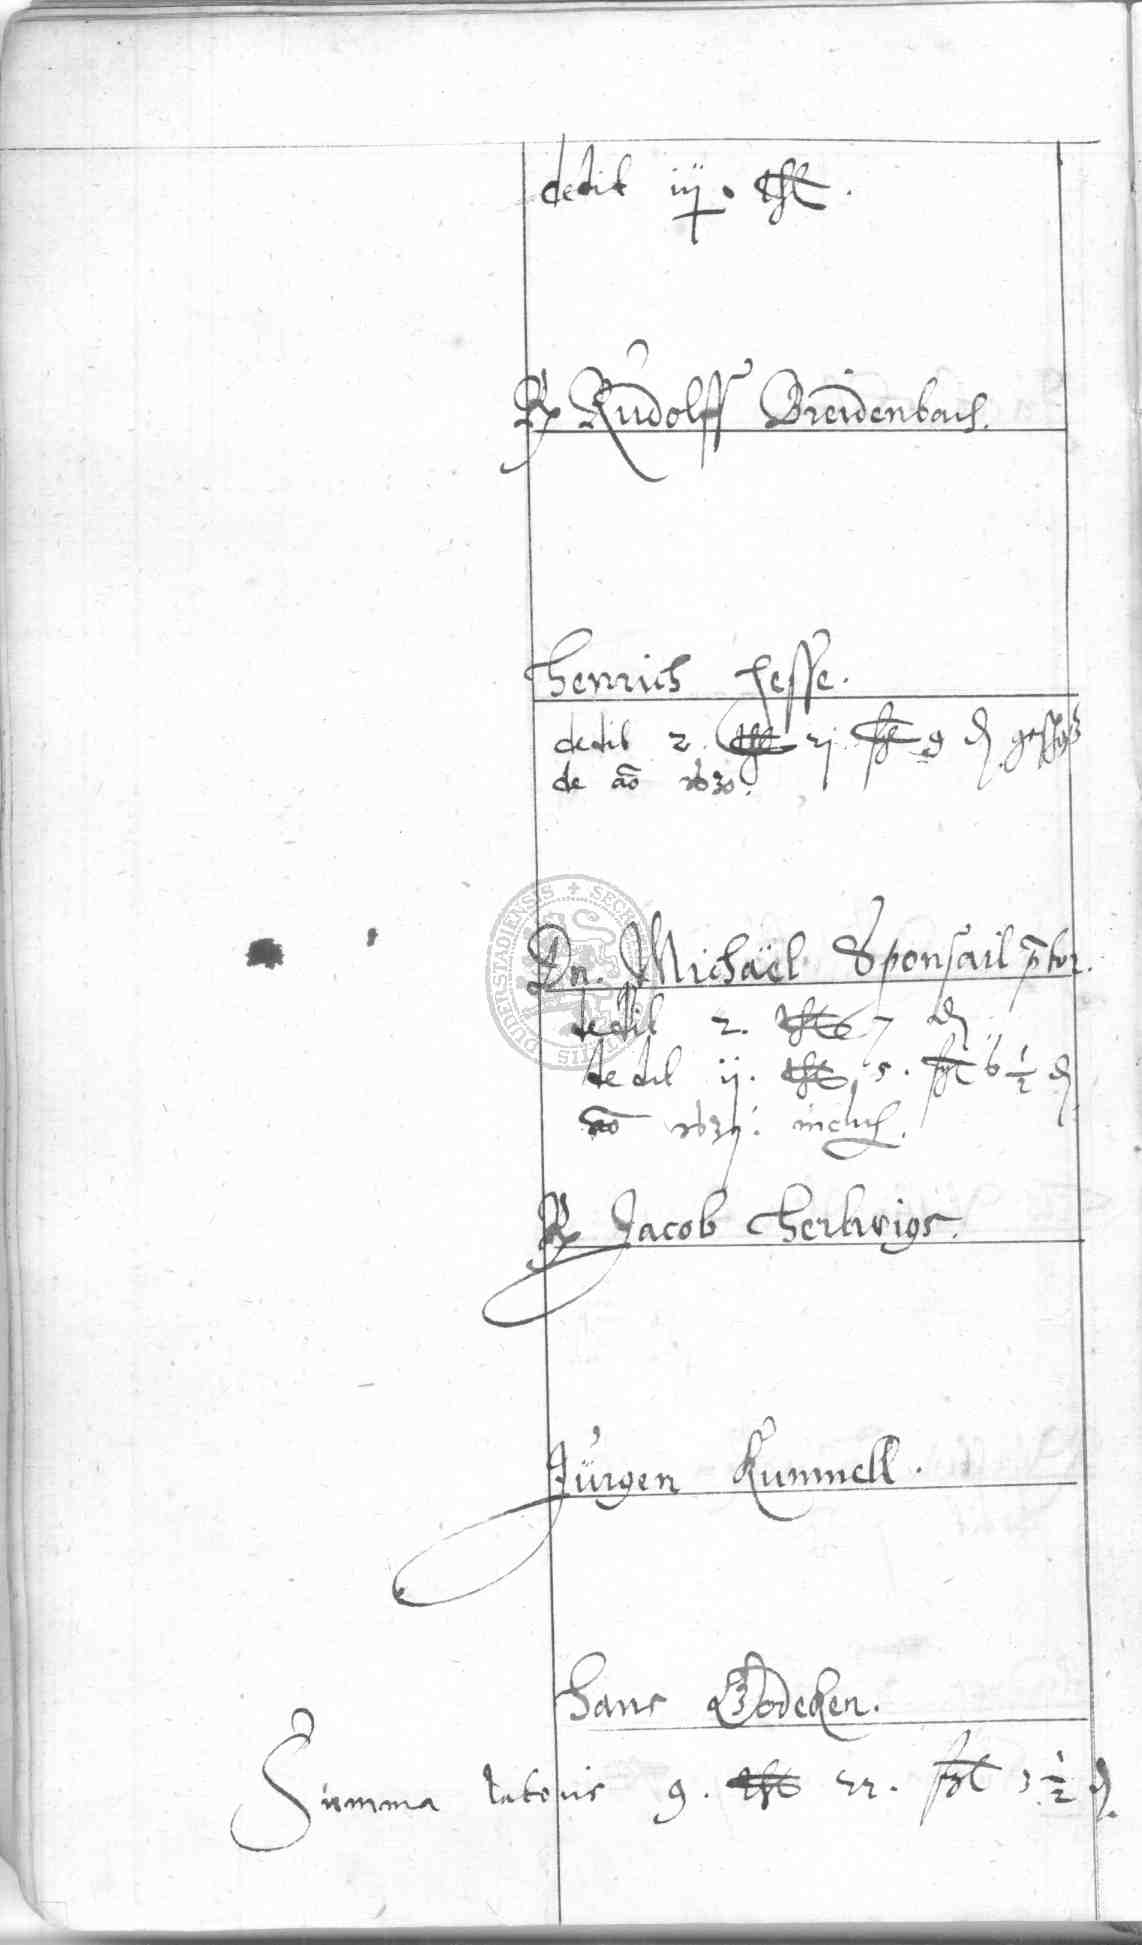 dedit iij. thl.
Rudolff Breidenbach.
Henrich Hesse.
dedit 2. thl 21. ßl 9 ₰
de ao 1630.
Dn. Michaël Sponsail prtor.
dedit 2. thl 7 ₰
dedit ij. thl 5. ßl 6 1/2 ₰
ao 1631. inclus.
Jacob Hertwigs.
Jürgen Kummell.
Hans Godeken.
Summa lateris 9. thl 22. ßl 3 1/2 ₰.